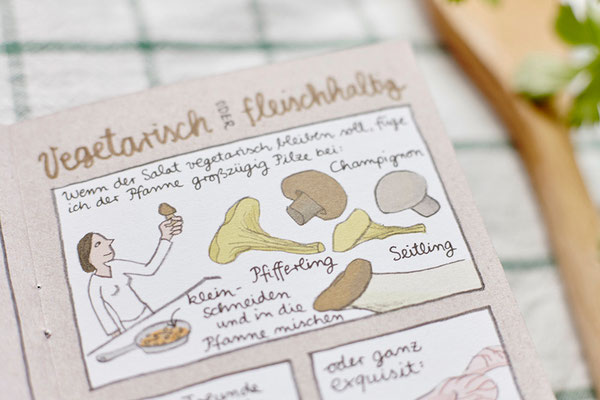 Vegetarisch ODER fleischhaltig
Wenn der Salat vegetarisch bleiben soll, füge
ich der Pfanne großzügig Pilze bei:
Champignon
Pfifferling
Seitling
klein-
schneiden
und in die
Pfanne mischen
oder ganz
exquisit: